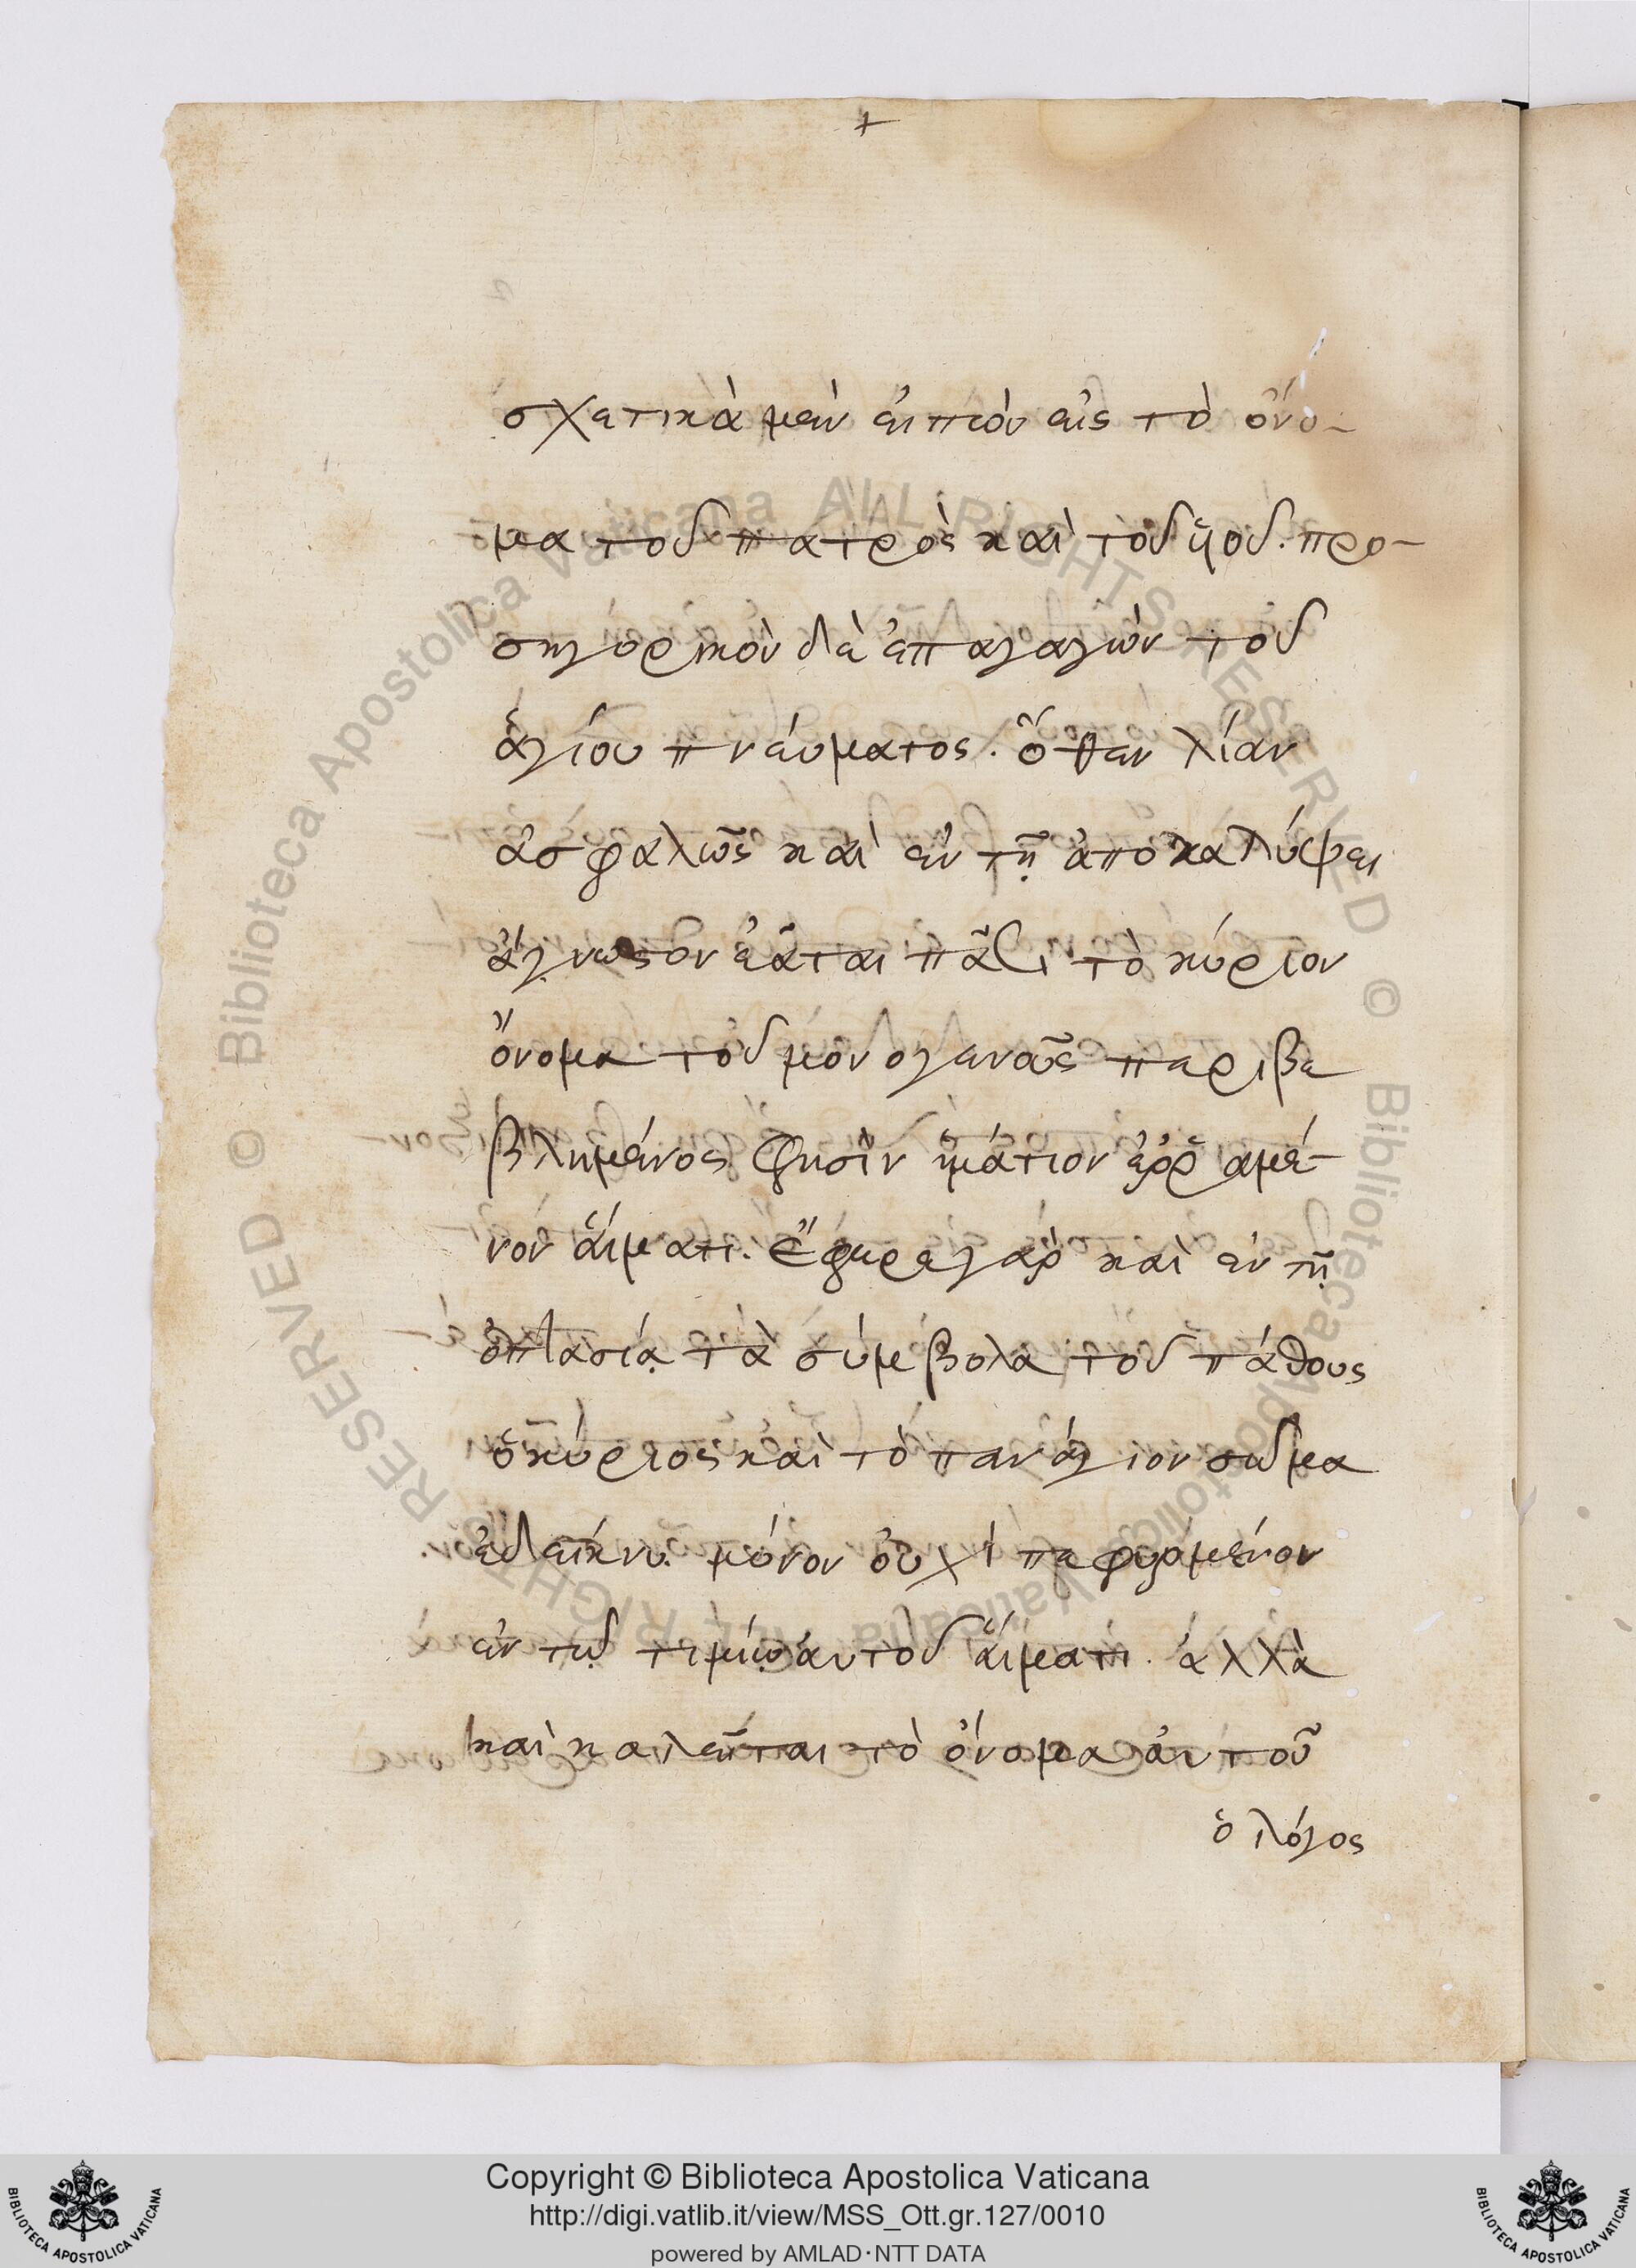 +
σχετικὰ μὲν εἰπὼν εἰς τὸ ὄνο-
μα τοῦ πατρὸς καὶ τοῦ ὑιοῦ. προ-
σηγορικὸν δὲ ἐπαγαγὼν τοῦ
ἁγίου πνεύματος. ὅθεν λίαν
ἀσφαλῶς καὶ ἐν τῇ ἀποκαλύψει
ἄγνωστον ἐᾶται πᾶσι τὸ κύριον
ὄνομα τοῦ μονογενοῦς περιβε
βλημένος φησὶν ἱμάτιον ἐρραμέ-
νον αἵματι. ἔφερε γὰρ καὶ ἐν τῇ
ὀπτασίᾳ τὰ σύμβολα τοῦ πάθους
ὁ κύριος καὶ τὸ πανάγιον σῶμα
ἐδείκνυ μόνον οὐχὶ πεφυρμένον
ἐν τῷ τιμίῳ ἀυτοῦ αἵματι. ἀλλὰ
καὶ καλεῖται τὸ ὄνομα ἀυτοῦ
ὁ λόγος
Copyright © Biblioteca Apostolica Vaticana
http://digi.vatlib.it/view/MSS_Ott.gr.127/0010
powered by AMLAD·NTT DATA
BIBLIOTECA APOSTOLICA VATICANA
BIBLIOTECA APOSTOLICA VATICANA
© Biblioteca Apostolica Vaticana ALL RIGHTS RESERVED
© Biblioteca Apostolica Vaticana ALL RIGHTS RESERVED